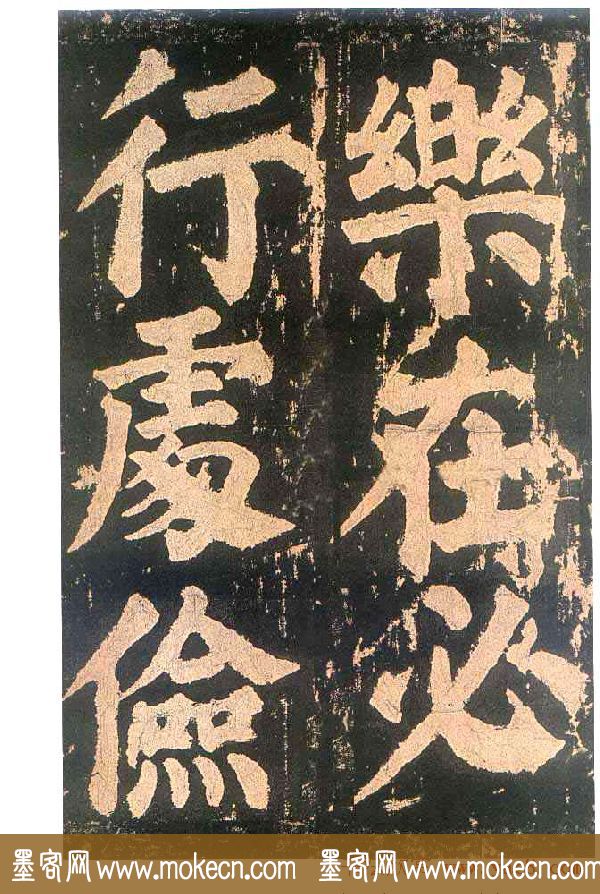 樂在必
行處儉
墨客网 www.mokecn.com 墨客网 www.mokecn.com